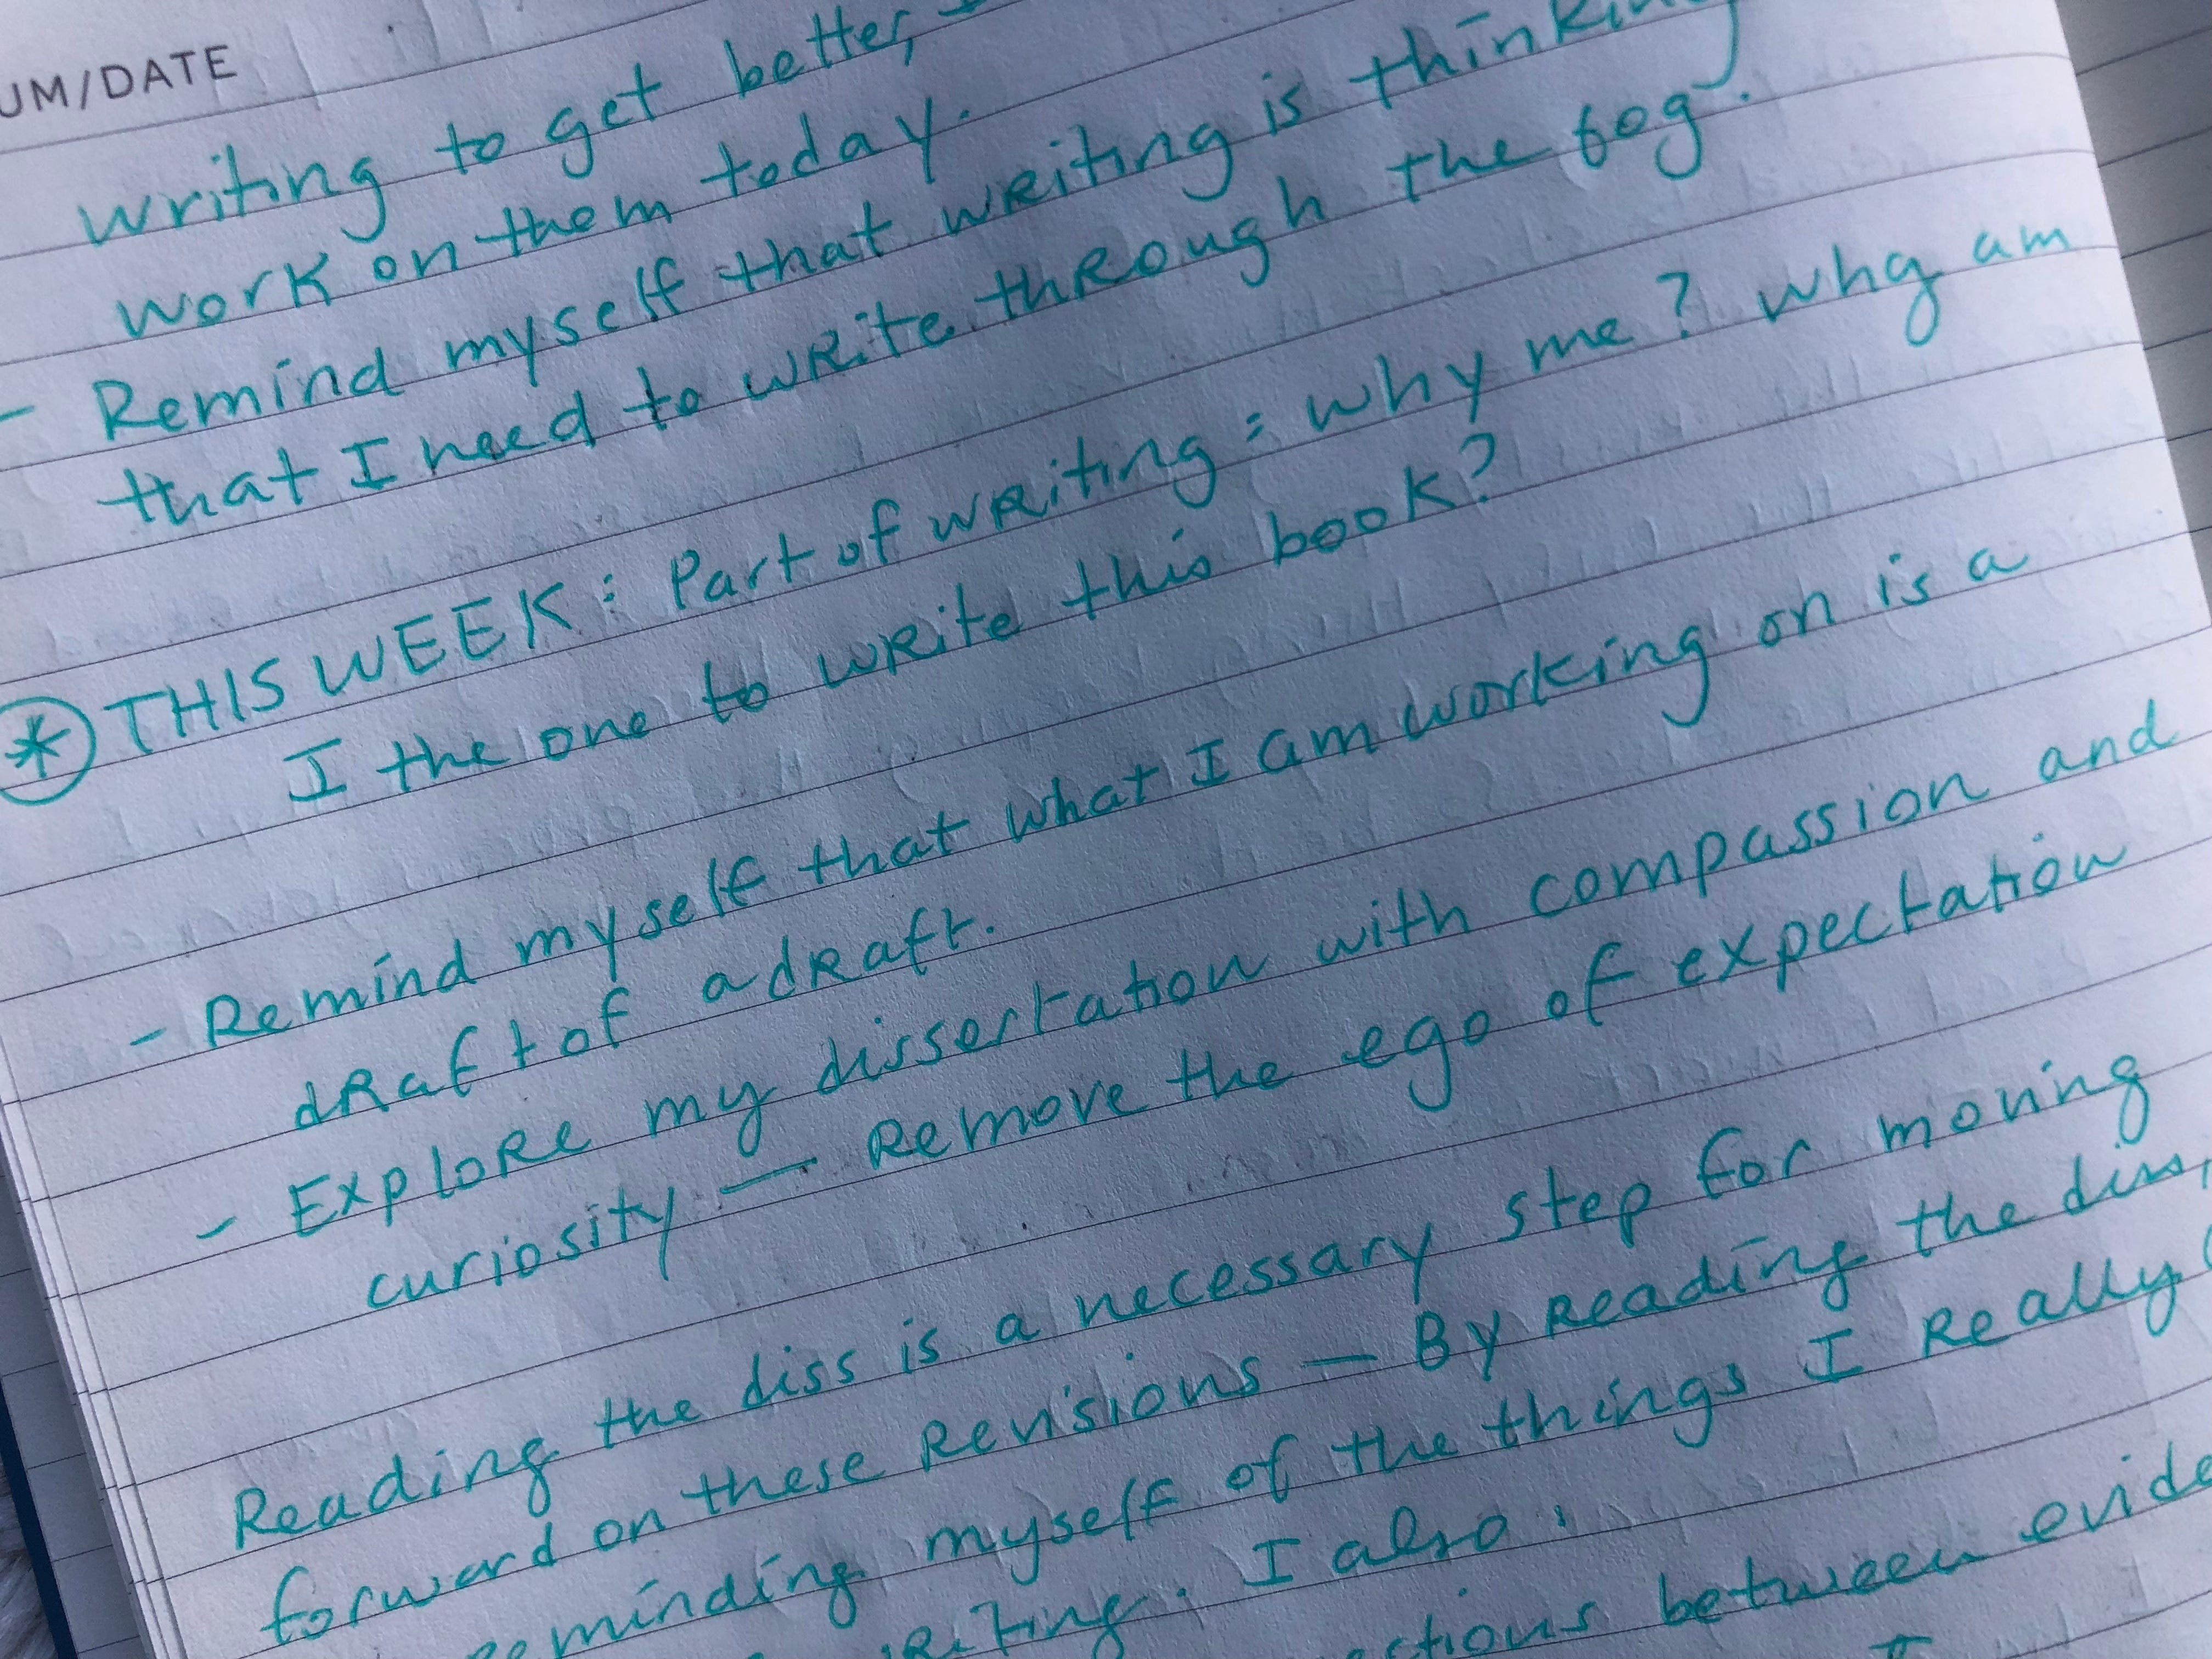 UM/DATE
writing to get better,
work on them today.
- Remind myself that writing is thinking
that I need to write through the fog.
* THIS WEEK: Part of writing = why me? Why am
I the one to write this book?
- Remind myself that what I am working on is a
draft of a draft.
- Explore my dissertation with compassion and
curiosity — Remove the ego of expectation
Reading the diss is a necessary step for moving
forward on these revisions — By reading the diss,
reminding myself of the things I really
writing. I also
between evide